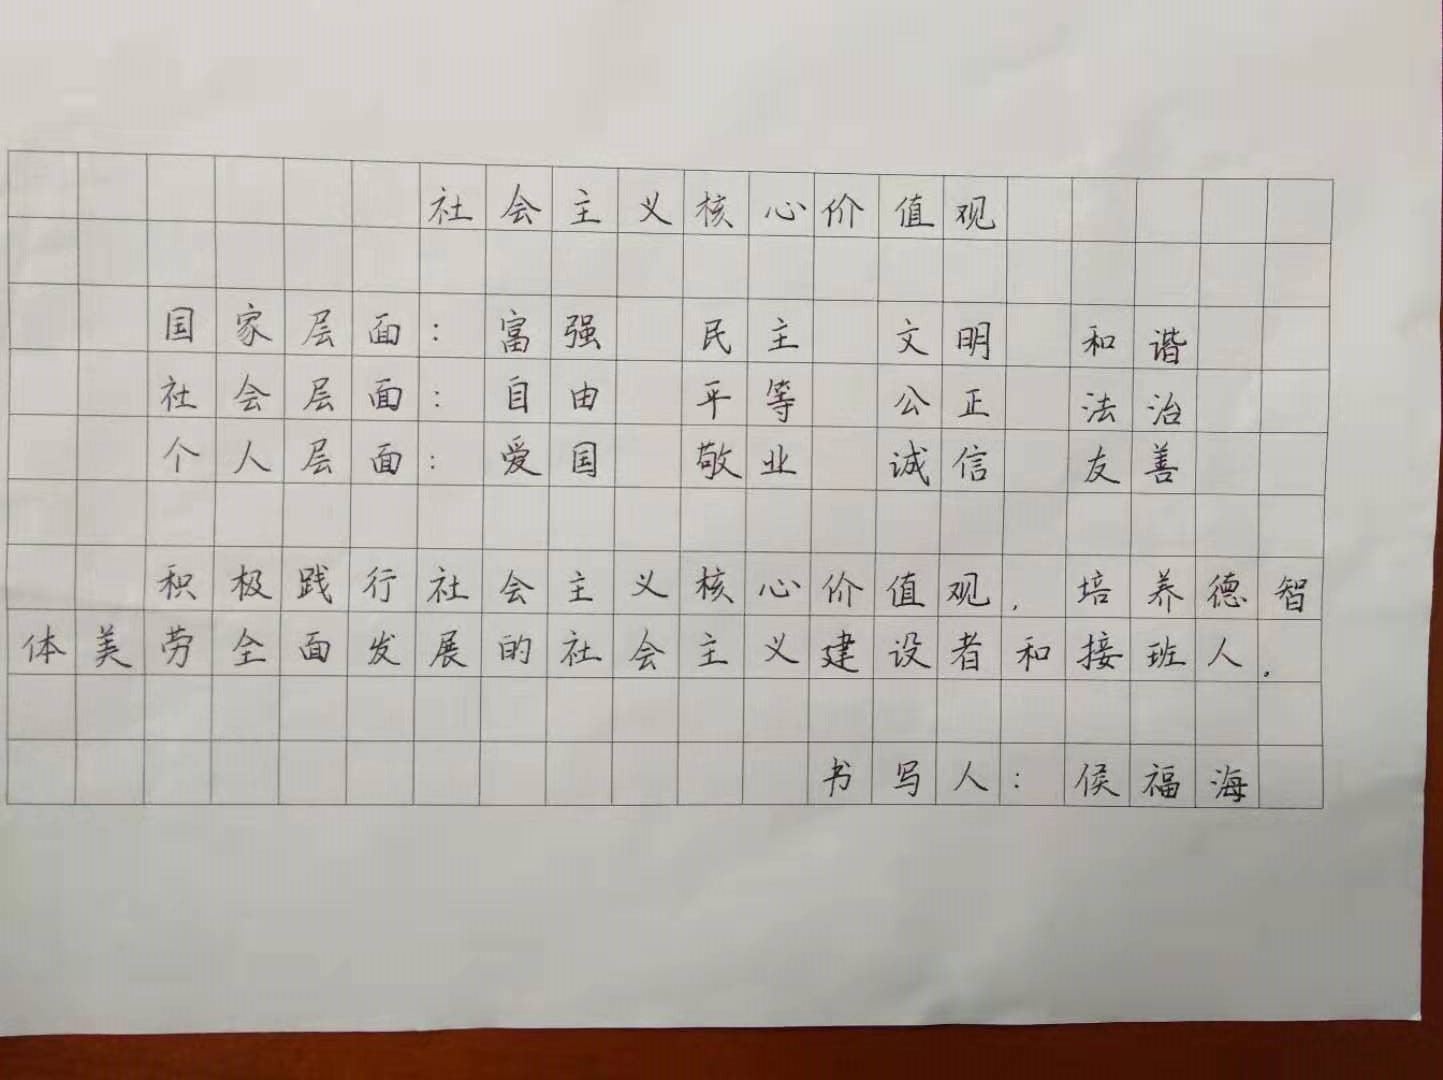 社会主义核心价值观
国家层面：富强 民主 文明 和谐
社会层面：自由 平等 公正 法治
个人层面：爱国 敬业 诚信 友善
积极践行社会主义核心价值观，培养德智
体美劳全面发展的社会主义建设者和接班人。
书写人：侯福海